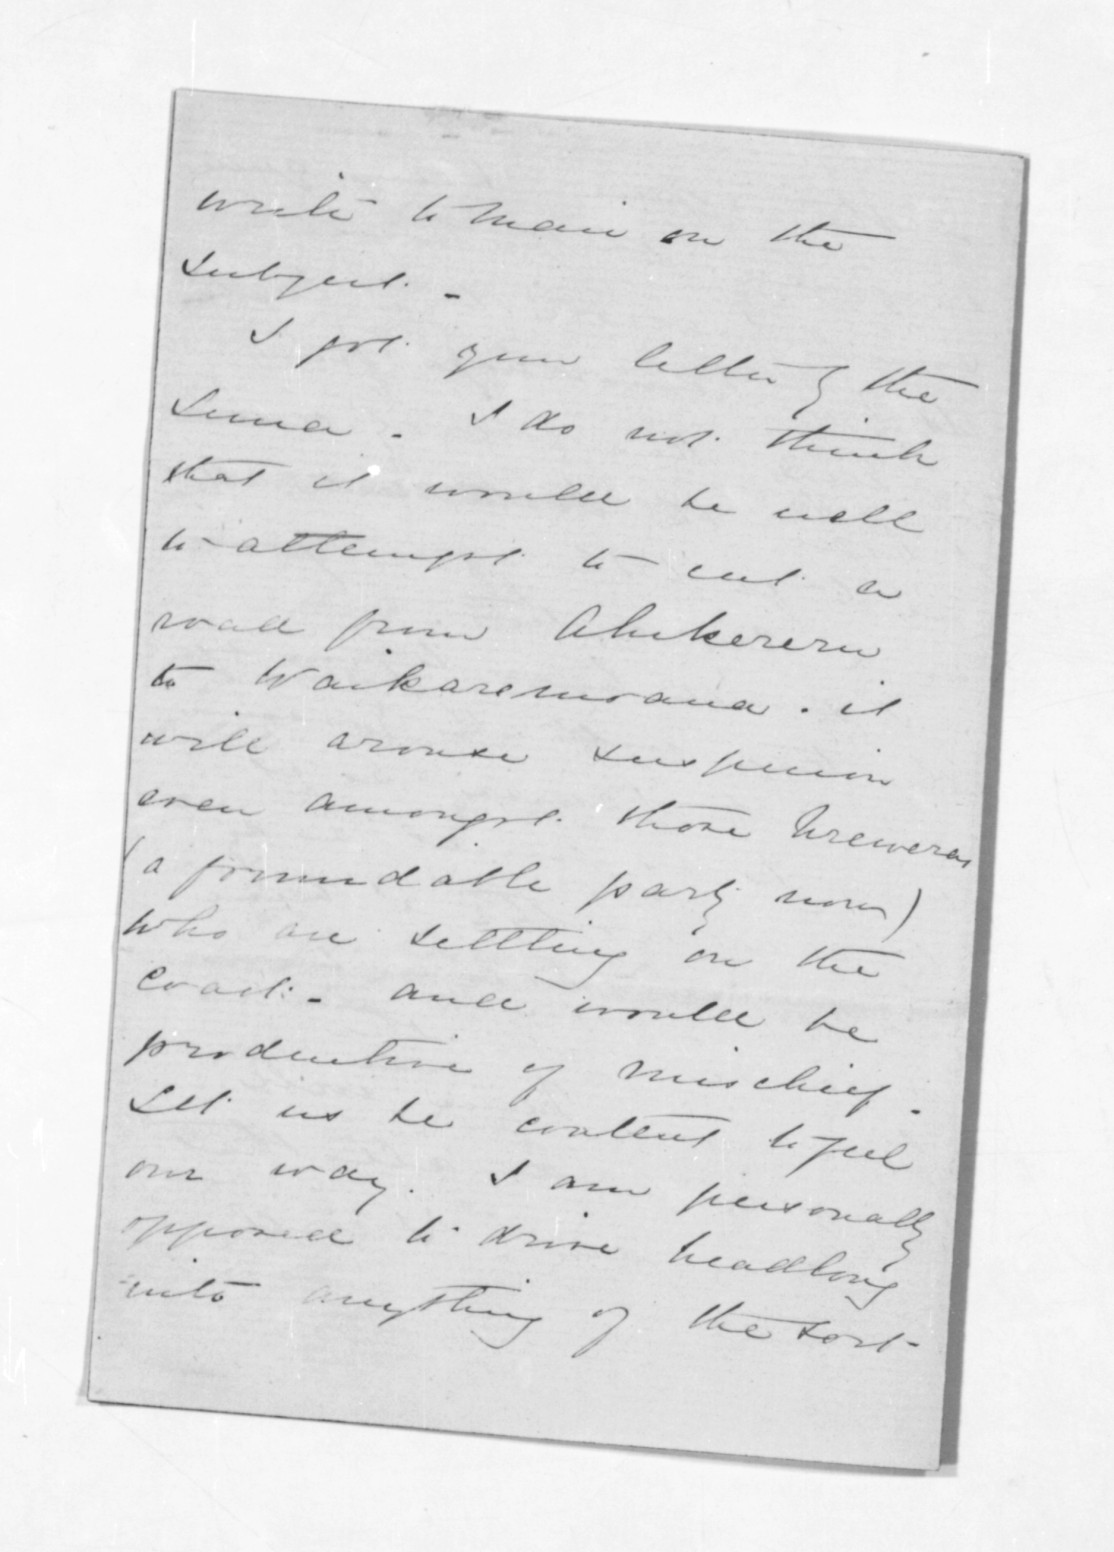 write to Mair on the
subject. -
I got your letter of the
Luna. I do not think
that it would be well
to attempt to cut a
road from Ahikereru
to Waikaremoana. it
will arouse suspicion
even amongst those Ureweras
(a formidable party now)
who are settling on the
coast - and would be
productive of mischief.
Let us be content to feel
our way. I am personally
opposed to drive headlong
into anything of the sort